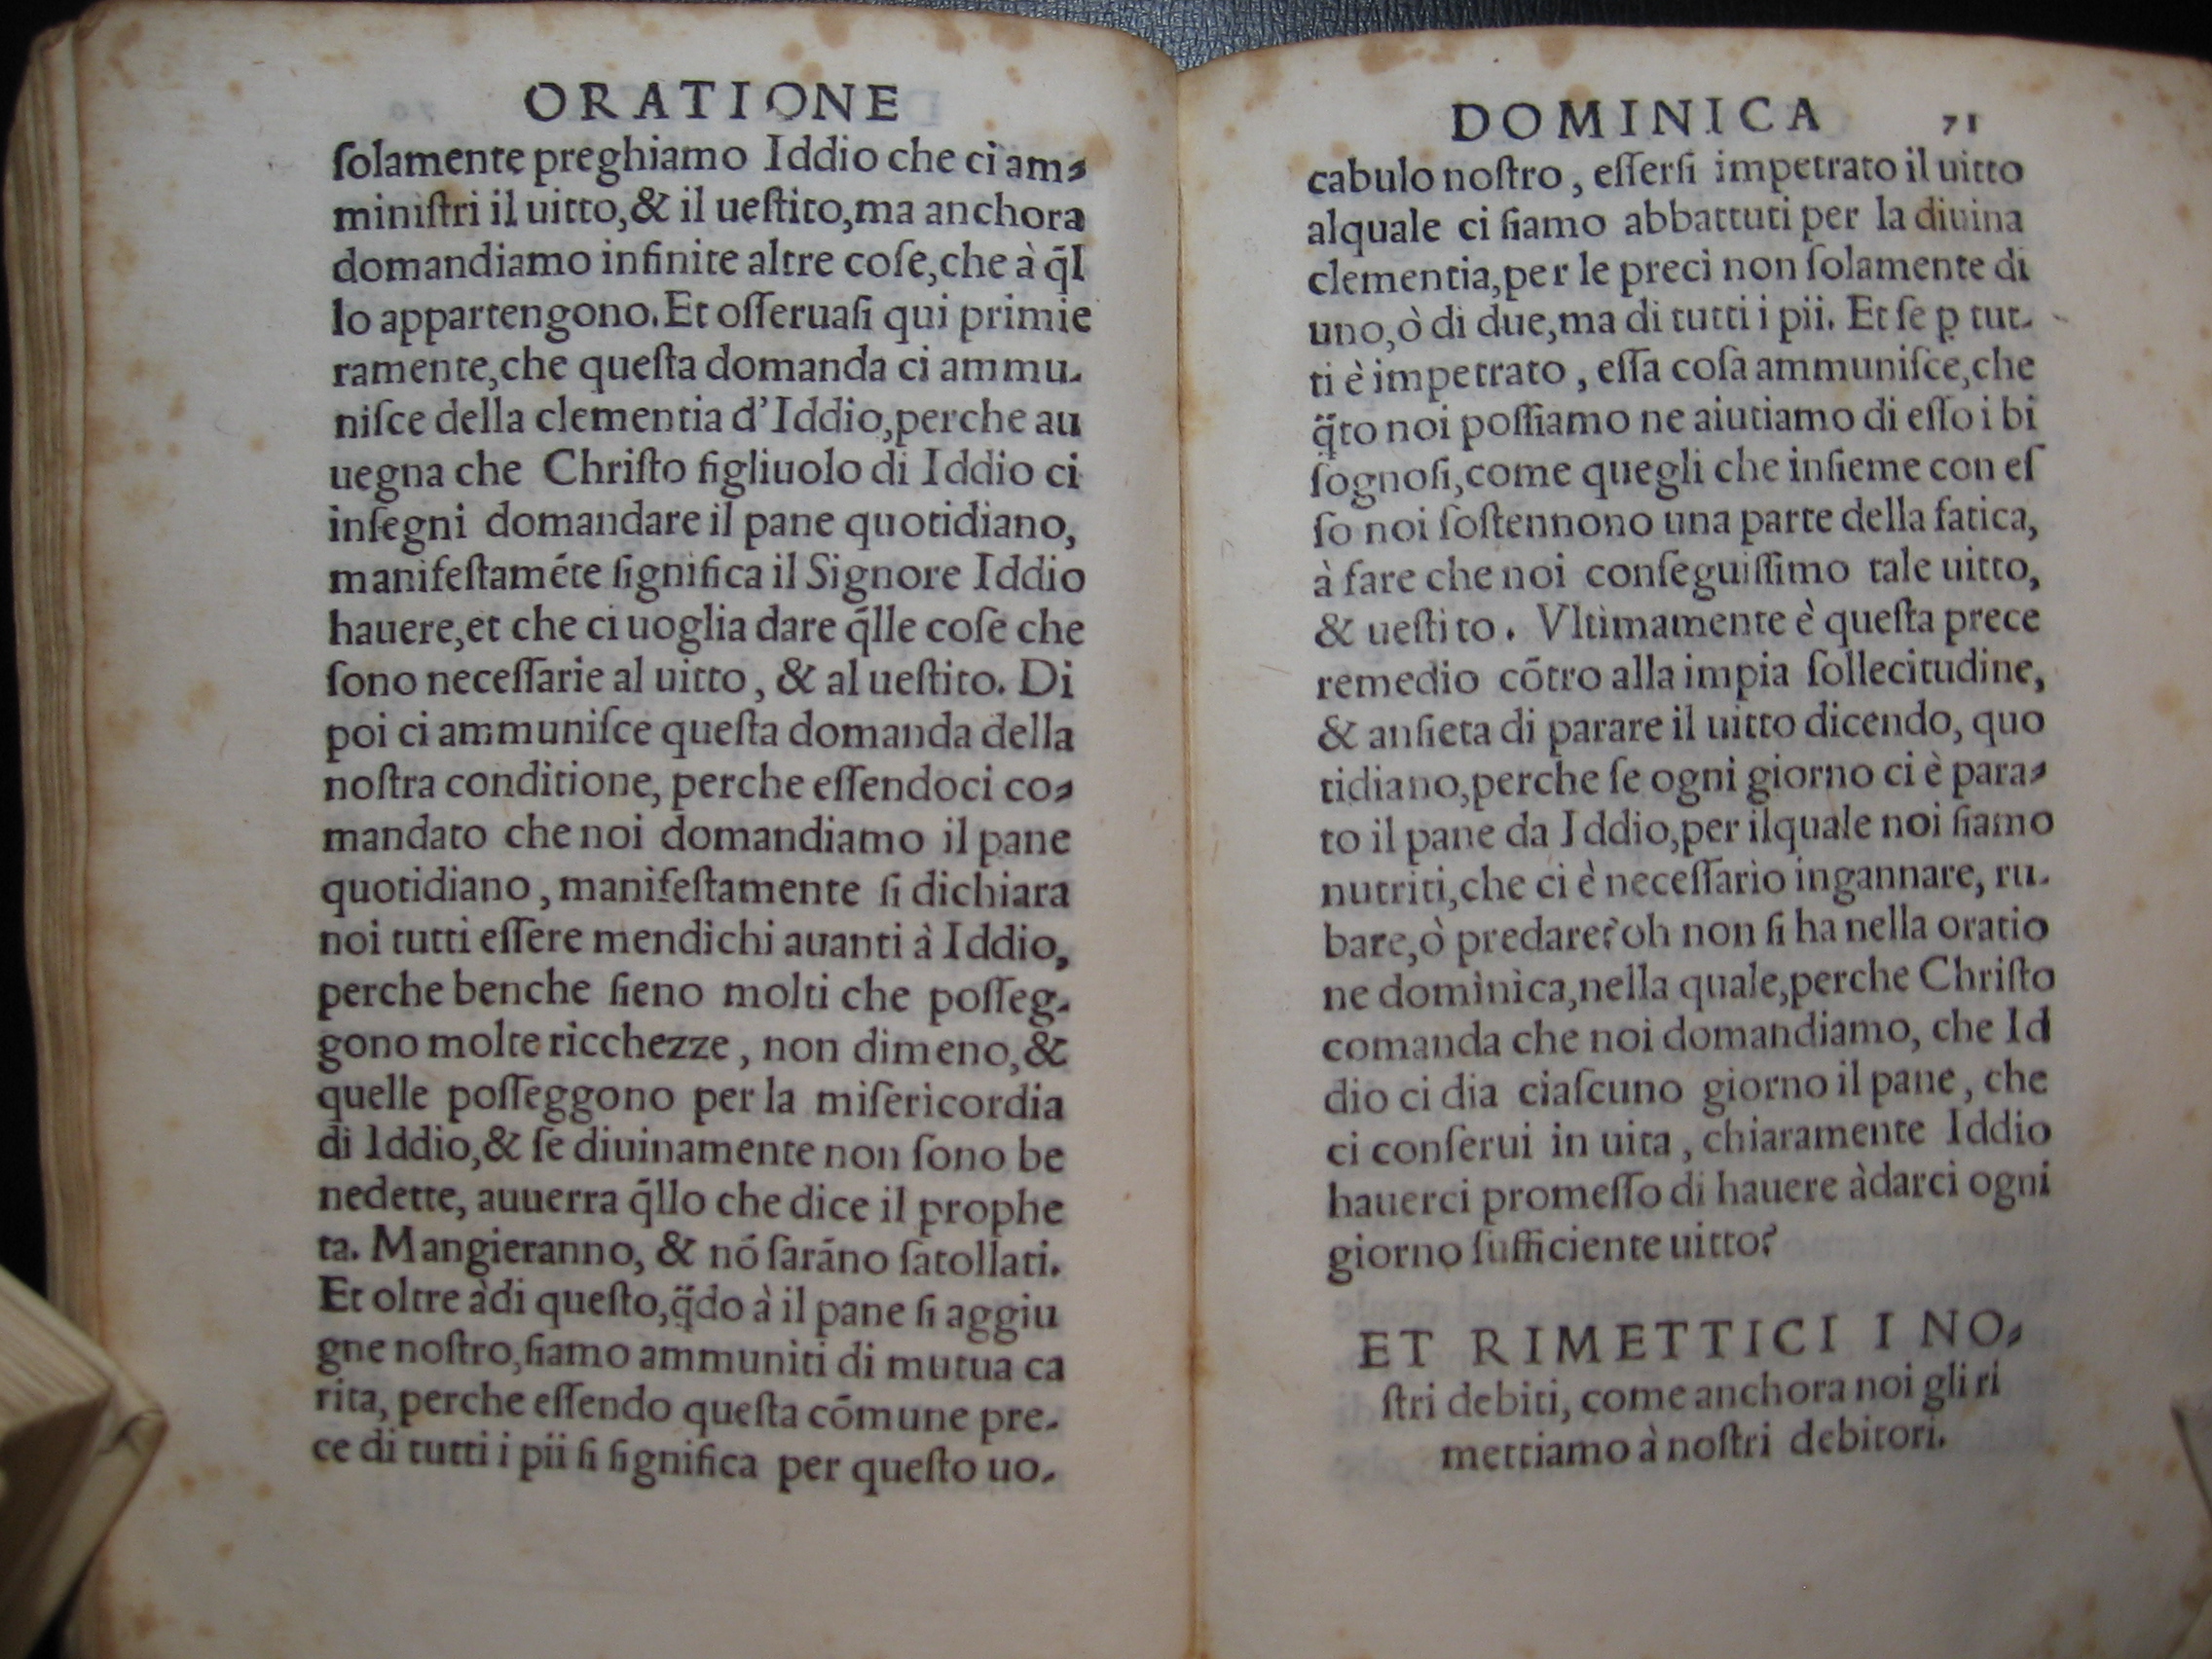 ORATIONE
ſolamente preghiamo Iddio che ci am⸗
miniſtri il uitto,& il ueſtito,ma anchora
domandiamo infinite altre coſe,che à q̃l
lo appartengono.Et oſſeruaſi qui primie
ramente,che queſta domanda ci ammu-
niſce della clementia d'Iddio,perche au
uegna che Chriſto figliuolo di Iddio ci
inſegni domandare il pane quotidiano,
manifeſtamēte ſignifica il Signore Iddio
hauere,et che ci uoglia dare q̃lle coſe che
ſono neceſſarie al uitto, & al ueſtito. Di
poi ci ammuniſce queſta domanda della
noſtra conditione, perche eſſendoci co⸗
mandato che noi domandiamo il pane
quotidiano, manifeſtamente ſi dichiara
noi tutti eſſere mendichi auanti à Iddio,
perche benche ſieno molti che poſſeg-
gono molte ricchezze, non dimeno,&
quelle poſſeggono per la miſericordia
di Iddio,& ſe diuinamente non ſono be
nedette, auuerra q̃llo che dice il prophe
ta. Mangieranno, & nō ſarāno ſatollati.
Et oltre àdi queſto,q̈̃do à il pane ſi aggiu
gne noſtro,ſiamo ammuniti di mutua ca
rita, perche eſſendo queſta cōmune pre-
ce di tutti i pii ſi ſignifica per queſto uo-
DOMINICA 71
cabulo noſtro, eſſerſi impetrato il uitto
alquale ci ſiamo abbattuti per la diuina
clementia,per le preci non ſolamente di
uno,ò di due,ma di tutti i pii. Et ſe ꝑ tut-
ti è impetrato, eſſa coſa ammuniſce,che
q̈̃to noi poſſiamo ne aiutiamo di eſſo i bi
ſognoſi,come quegli che inſieme con eſ
ſo noi ſoſtennono una parte della fatica,
à fare che noi conſeguiſſimo tale uitto,
& ueſtito. Vltimamente è queſta prece
remedio cōtro alla impia ſollecitudine,
& anſieta di parare il uitto dicendo, quo
tidiano,perche ſe ogni giorno ci è para⸗
to il pane da Iddio,per ilquale noi ſiamo
nutriti,che ci è neceſſario ingannare, ru-
bare,ò predare? oh non ſi ha nella oratio
ne dominica,nella quale,perche Chriſto
comanda che noi domandiamo, che Id
dio ci dia ciaſcuno giorno il pane, che
ci conſerui in uita, chiaramente Iddio
hauerci promeſſo di hauere àdarci ogni
giorno ſufficiente uitto?
ET RIMETTICI I NO⸗
ſtri debiti, come anchora noi gli ri
mettiamo à noſtri debitori.